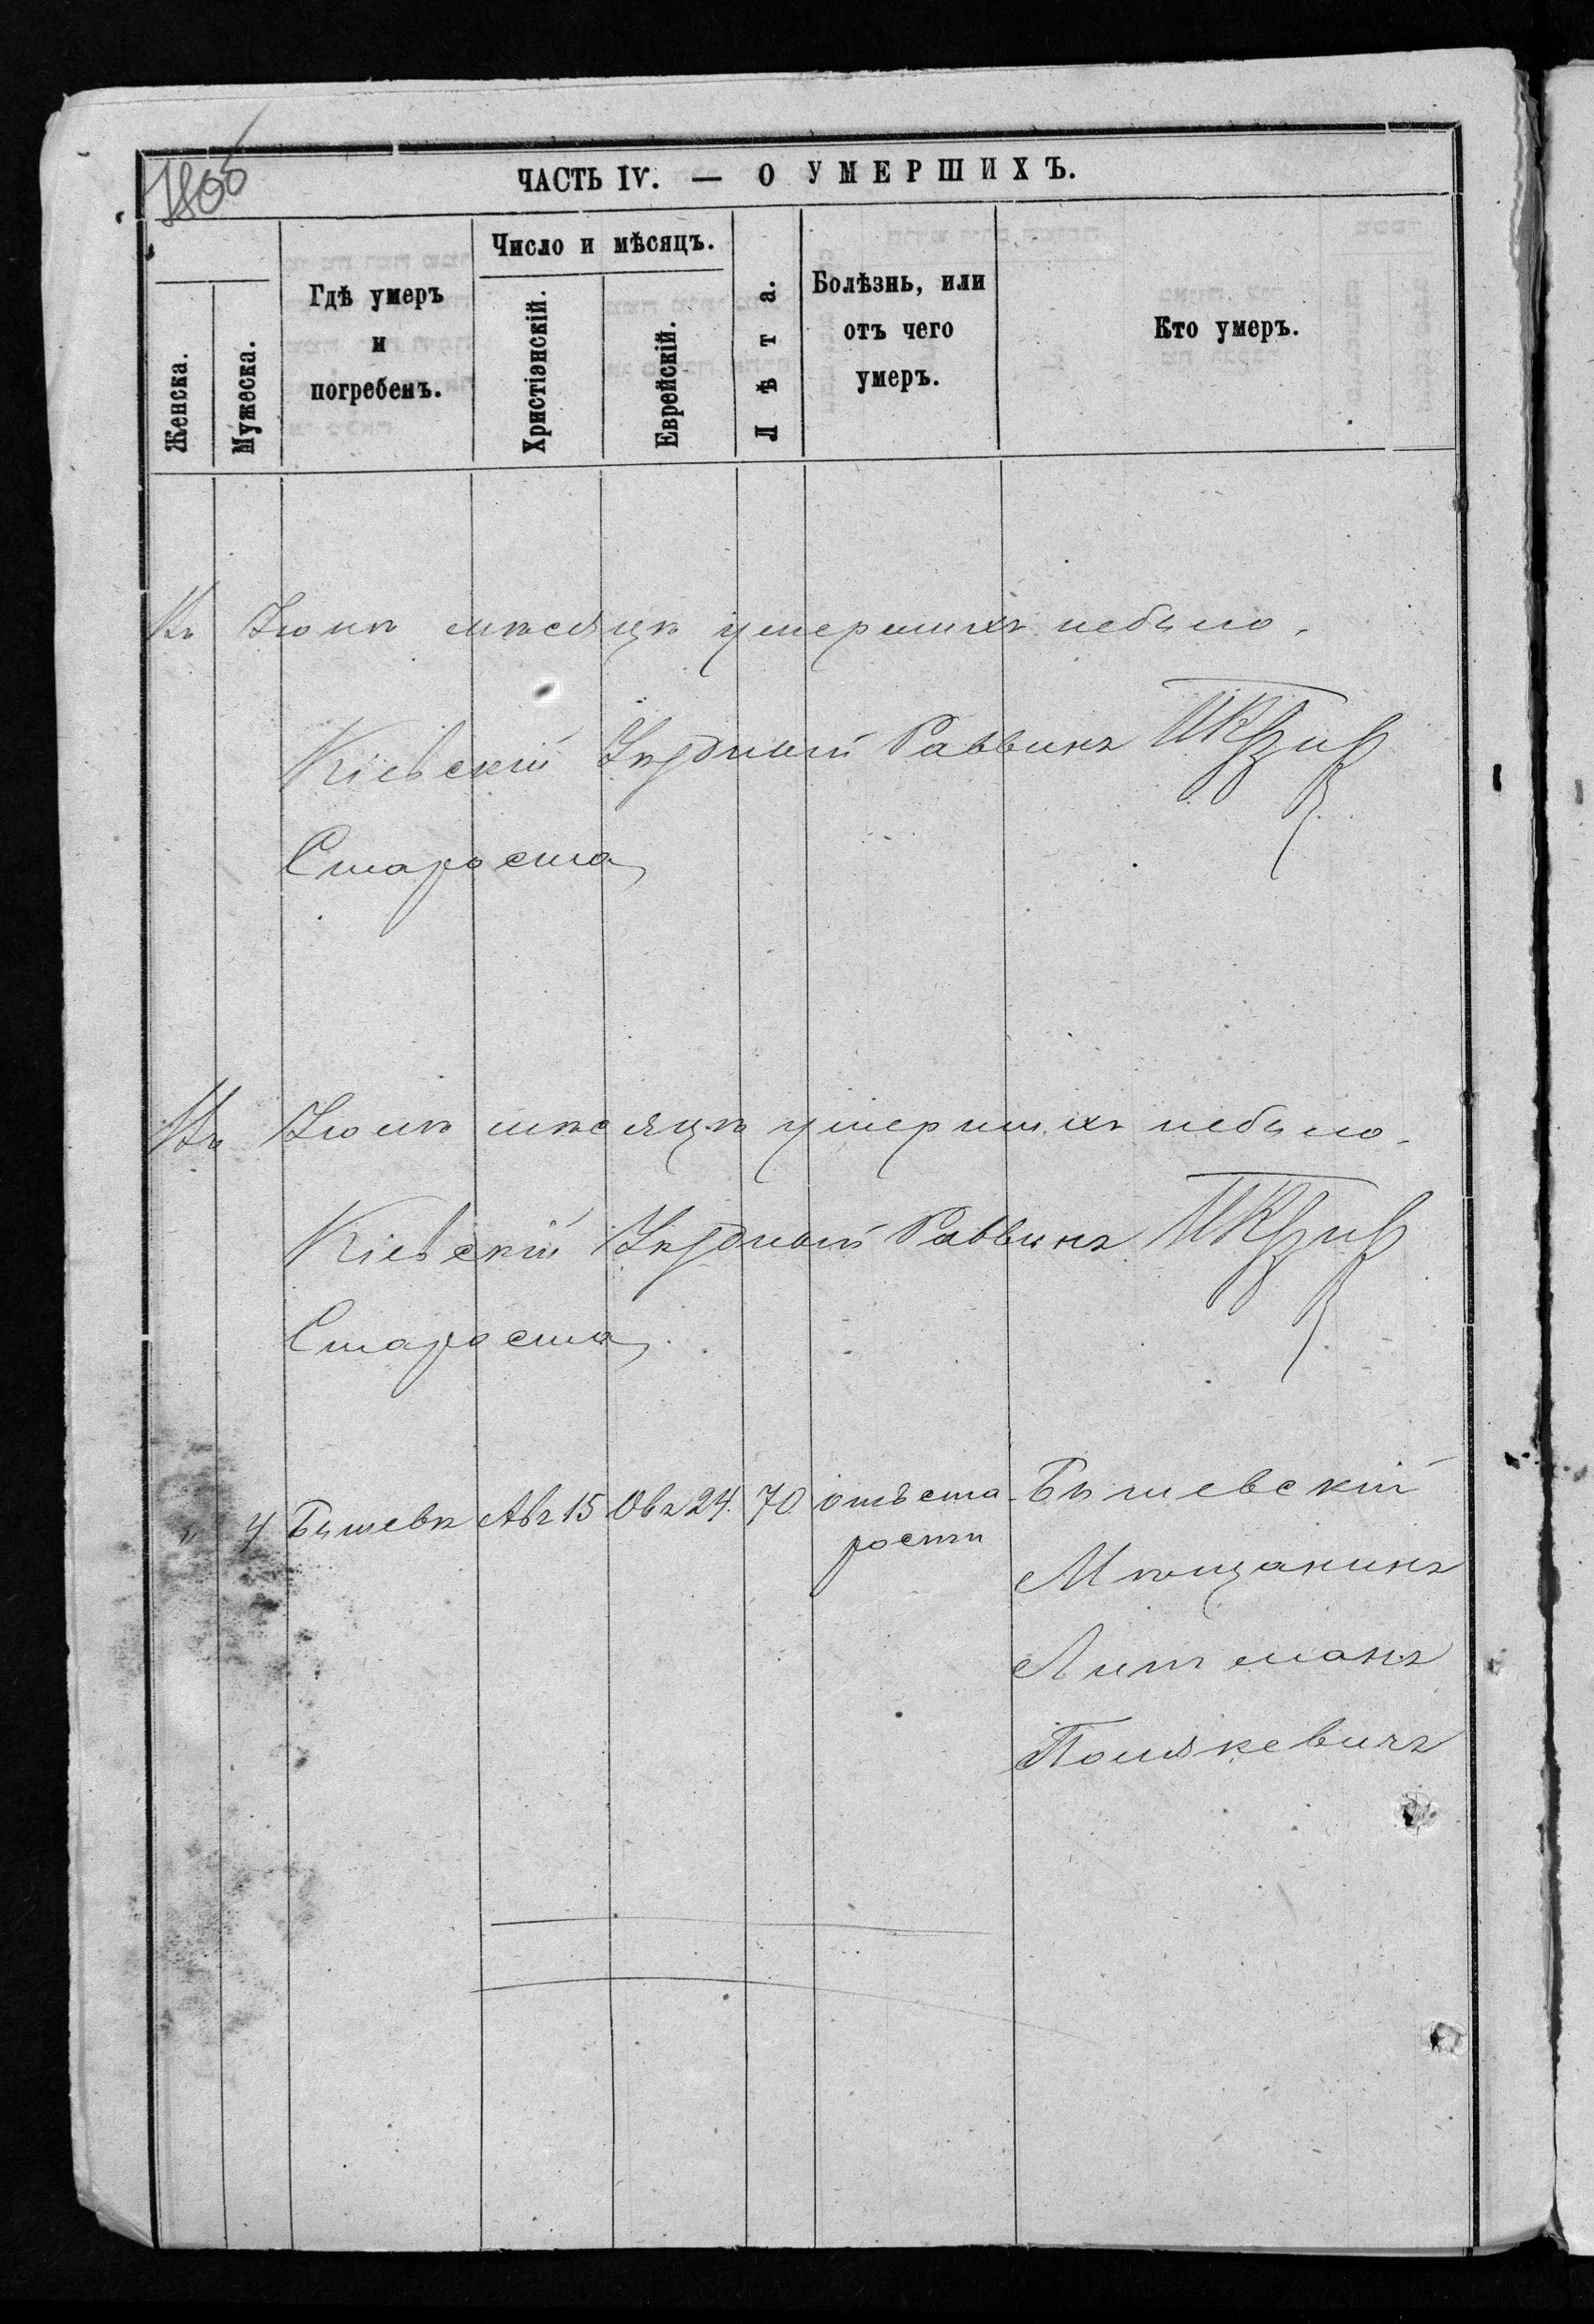 1806
ЧАСТЬ IV. — О УМЕРШИХЪ.
Женска.
Мужеска.
Гдѣ умеръ
и
погребенъ.
Число и мѣсяцъ.
Христіэнскій.
Еврейскій.
Лѣта.
Болѣзнь, или
отъ чего
умеръ.
Кто умеръ.
Въ Іюнѣ мѣсяцѣ умершихъ небыло.
Кіевскій Уѣздный Раввинъ
Староста
Въ Іюлѣ мѣсяцѣ умершихъ небыло.
Кіевскій Уѣздный Раввинъ
Староста
" 4 Бышевѣ Авг 15 Овъ 24. 70 отъ ста Бышевскій
рости
Мѣщанинъ
Литманъ